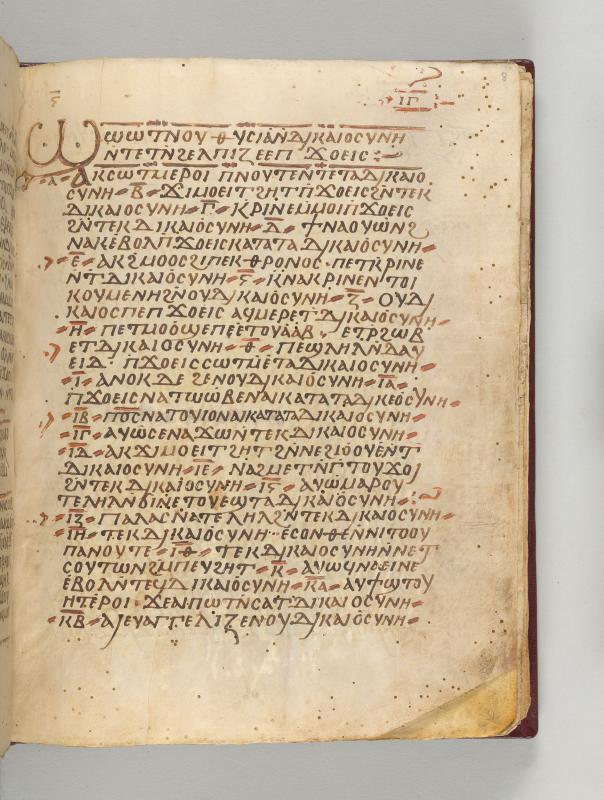 ⲋ ⲓⲅ 8
ϣⲱⲱⲧⲛⲟⲩⲑⲩⲥⲓⲁⲛⲇⲓⲕⲁⲓⲟⲥⲩⲛⲏ
ⲛⲧⲉⲧⲛϩⲉⲗⲡⲓⲍⲉⲉⲡϫⲟⲉⲓⲥ
ⲁ ⲁⲕⲥⲱⲧⲙⲉⲣⲟⲓ ⲡⲛⲟⲩⲧⲉⲛⲧⲉⲧⲁⲇⲓⲕⲁⲓⲟ
ⲥⲩⲛⲏ ⲃ ϫⲓⲙⲟⲉⲓⲧϩⲏⲧ ⲡϫⲟⲉⲓⲥϩⲛⲧⲉⲕ
ⲇⲓⲕⲁⲓⲟⲥⲩⲛⲏ ⲅ ⲕⲣⲓⲛⲉⲙⲙⲟⲓⲡϫⲟⲉⲓⲥ
ϩⲛⲧⲉⲕⲇⲓⲕⲁⲓⲟⲥⲩⲛⲏ ⲇ ϯⲛⲁⲟⲩⲱⲛϩ
ⲛⲁⲕⲉⲃⲟⲗⲡϫⲟⲉⲓⲥⲕⲁⲧⲁⲧⲁⲇⲓⲕⲁⲓⲟⲥⲩⲛⲏ
ⲉ ⲁⲕϩⲙⲟⲟⲥϩⲓⲡⲉⲕⲑⲣⲟⲛⲟⲥ ⲡⲉⲧⲕⲣⲓⲛⲉ
ⲛⲧⲇⲓⲕⲁⲓⲟⲥⲩⲛⲏ ⲋ ⲕⲛⲁⲕⲣⲓⲛⲉⲛⲧⲟⲓ
ⲕⲟⲩⲙⲉⲛⲏϩⲛⲟⲩⲇⲓⲕⲁⲓⲟⲥⲩⲛⲏ ⲍ ⲟⲩⲇⲓ
ⲕⲁⲓⲟⲥⲡⲉⲡϫⲟⲉⲓⲥ ⲁϥⲙⲉⲣⲉⲧⲇⲓⲕⲁⲓⲟⲥⲩⲛⲏ
ⲏ ⲡⲉⲧⲙⲟⲟϣⲉⲡⲉⲉⲧⲟⲩⲁⲁⲃ ⲉⲧⲣϩⲱⲃ
ⲉⲧⲇⲓⲕⲁⲓⲟⲥⲩⲛⲏ ⲑ ⲡⲉϣⲗⲏⲗⲛⲇⲁⲩ
ⲉⲓⲇ ⲡϫⲟⲉⲓⲥⲥⲱⲧⲙⲉⲧⲁⲇⲓⲕⲁⲓⲟⲥⲩⲛⲏ
ⲓ ⲁⲛⲟⲕⲇⲉϩⲉⲛⲟⲩⲇⲓⲕⲁⲓⲟⲥⲩⲛⲏ ⲓⲁ
ⲡϫⲟⲉⲓⲥⲛⲁⲧⲱⲱⲃⲉⲛⲁⲓⲕⲁⲧⲁⲧⲁⲇⲓⲕⲉⲟⲥⲩⲛⲏ
ⲓⲃ ⲡⲟⲥⲛⲁⲧⲟⲩⲓⲟⲛⲁⲓⲕⲁⲧⲁⲧⲁⲇⲓⲕⲁⲓⲟⲥⲩⲛⲏ
ⲓⲅ ⲁⲩⲱⲥⲉⲛⲁϫⲱⲛⲧⲉⲕⲇⲓⲕⲁⲓⲟⲥⲩⲛⲏ
ⲓⲇ ⲁⲕϫⲓⲙⲟⲉⲓⲧϩⲏⲧ ϩⲛⲛⲉϩⲓⲟⲟⲩⲉⲛⲧ
ⲇⲓⲕⲁⲓⲟⲥⲩⲛⲏ ⲓⲉ ⲛⲁϩⲙⲉⲧⲛⲅⲧⲟⲩϫⲟⲓ
ϩⲛⲧⲉⲕⲇⲓⲕⲁⲓⲟⲥⲩⲛⲏ ⲓⲋ ⲁⲩⲱⲙⲁⲣⲟⲩ
ⲧⲉⲗⲏⲗⲛϭⲓⲛⲉⲧⲟⲩⲉϣⲧⲁⲇⲓⲕⲁⲓⲟⲥⲩⲛⲏ
ⲓⲍ ⲡⲁⲗⲁⲥⲛⲁⲧⲉⲗⲏⲗϩⲛⲧⲉⲕⲇⲓⲕⲁⲓⲟⲥⲩⲛⲏ
ⲓⲏ ⲧⲉⲕⲇⲓⲕⲁⲓⲟⲥⲩⲛⲏ ⲉⲥⲟⲛⲑⲉⲛⲛⲓⲧⲟⲟⲩ
ⲡⲁⲛⲟⲩⲧⲉ ⲓⲑ ⲧⲉⲕⲇⲓⲕⲁⲓⲟⲥⲩⲛⲏⲛⲛⲉⲧ
ⲥⲟⲩⲧⲱⲛϩⲙⲡⲉⲩϩⲏⲧ ⲕ ⲁⲩⲱϥⲛⲁⲉⲓⲛⲉ
ⲉⲃⲟⲗⲛⲧⲉϥⲇⲓⲕⲁⲓⲟⲥⲩⲛⲏ ⲕⲁ ⲁⲩϯϣⲧⲟⲩ
ⲏⲧⲉⲣⲟⲓ ϫⲉⲁⲓⲡⲱⲧⲛⲥⲁⲧⲇⲓⲕⲁⲓⲟⲥⲩⲛⲏ
ⲕⲃ ⲁⲓⲉⲩⲁⲅⲅⲉⲗⲓⲍⲉⲛⲟⲩⲇⲓⲕⲁⲓⲟⲥⲩⲛⲏ